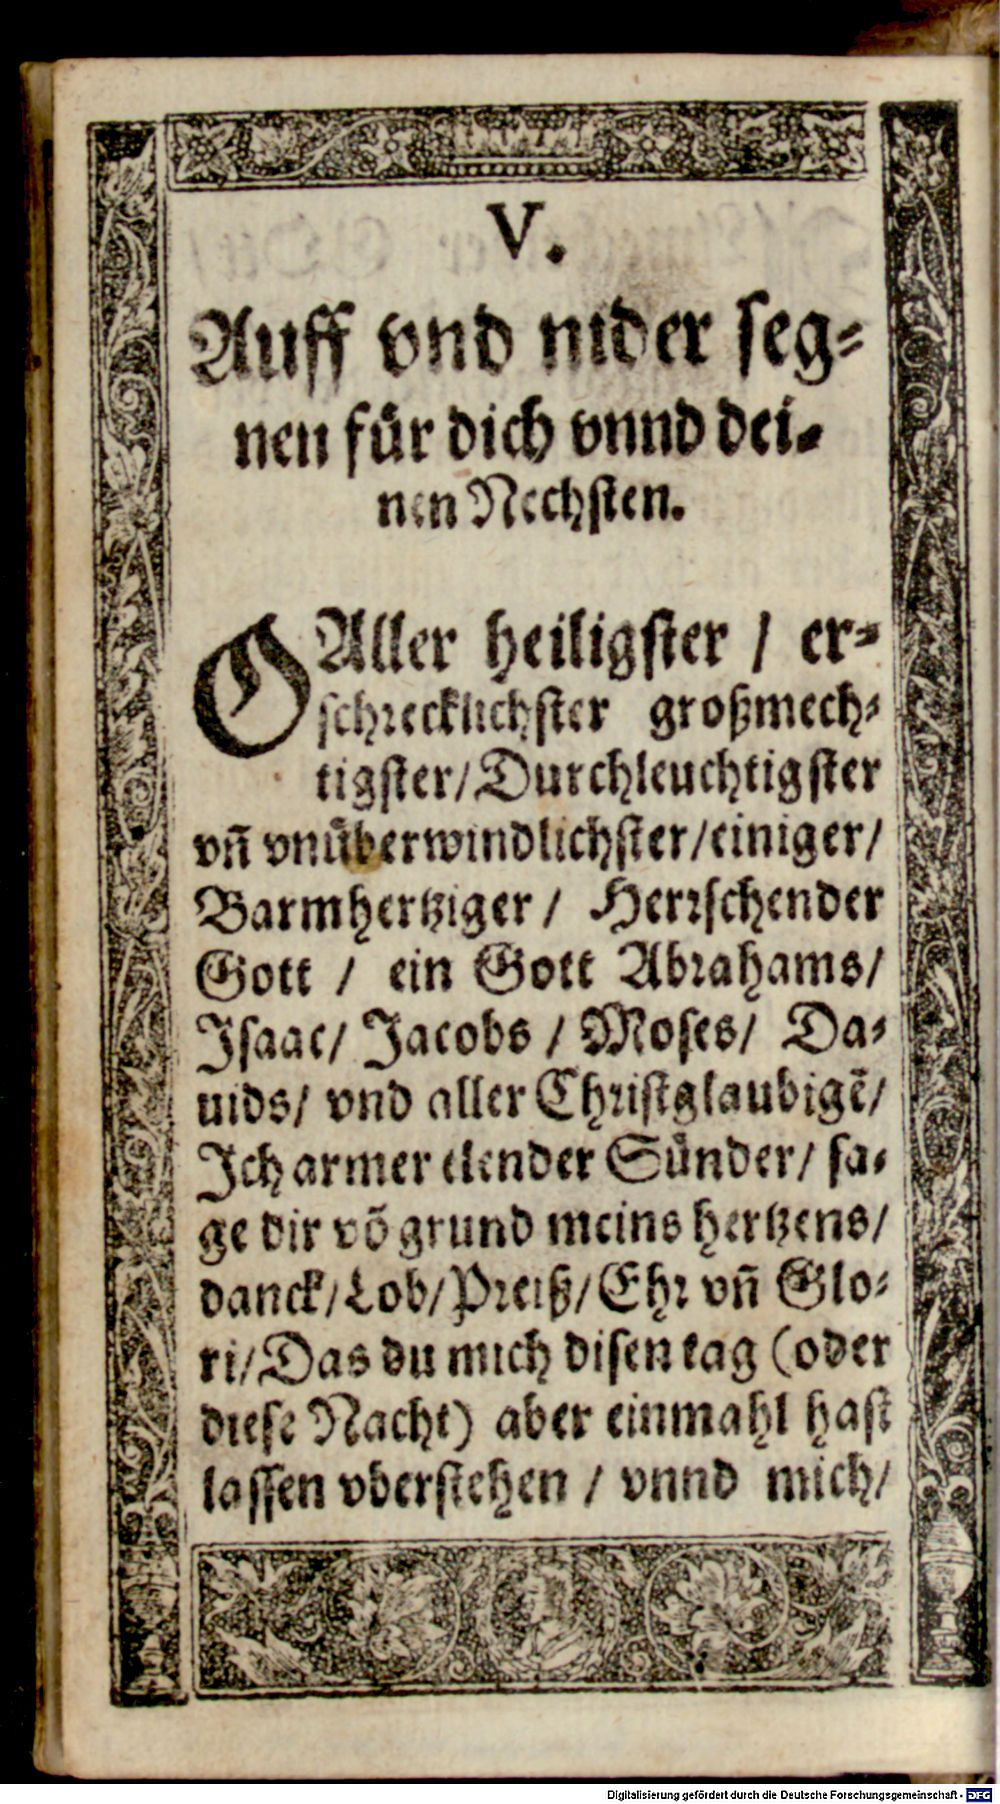 V.
Auff vnd nider seg⸗
nen für dich vnnd dei⸗
nen Nechsten.
O Aller heiligster / er⸗
schrecklichster großmech⸗
tigster/ Durchleuchtigster
vñ vnüberwindlichster/ einiger/
Barmhertziger / Herrschender
Gott / ein Gott Abrahams/
Isaac/ Jacobs / Moses/ Da⸗
uids/ vnd aller Christglaubigẽ/
Ich armer elender Sünder/ sa⸗
ge dir võ grund meins hertzens/
danck/ Lob/ Preiß/ Ehr vñ Glo⸗
ri/ Das du mich disen tag (oder
diese Nacht) aber einmahl hast
lassen vberstehen / vnnd mich/
Digitalisierung gefördert durch die Deutsche Forschungsgemeinschaft - DFG